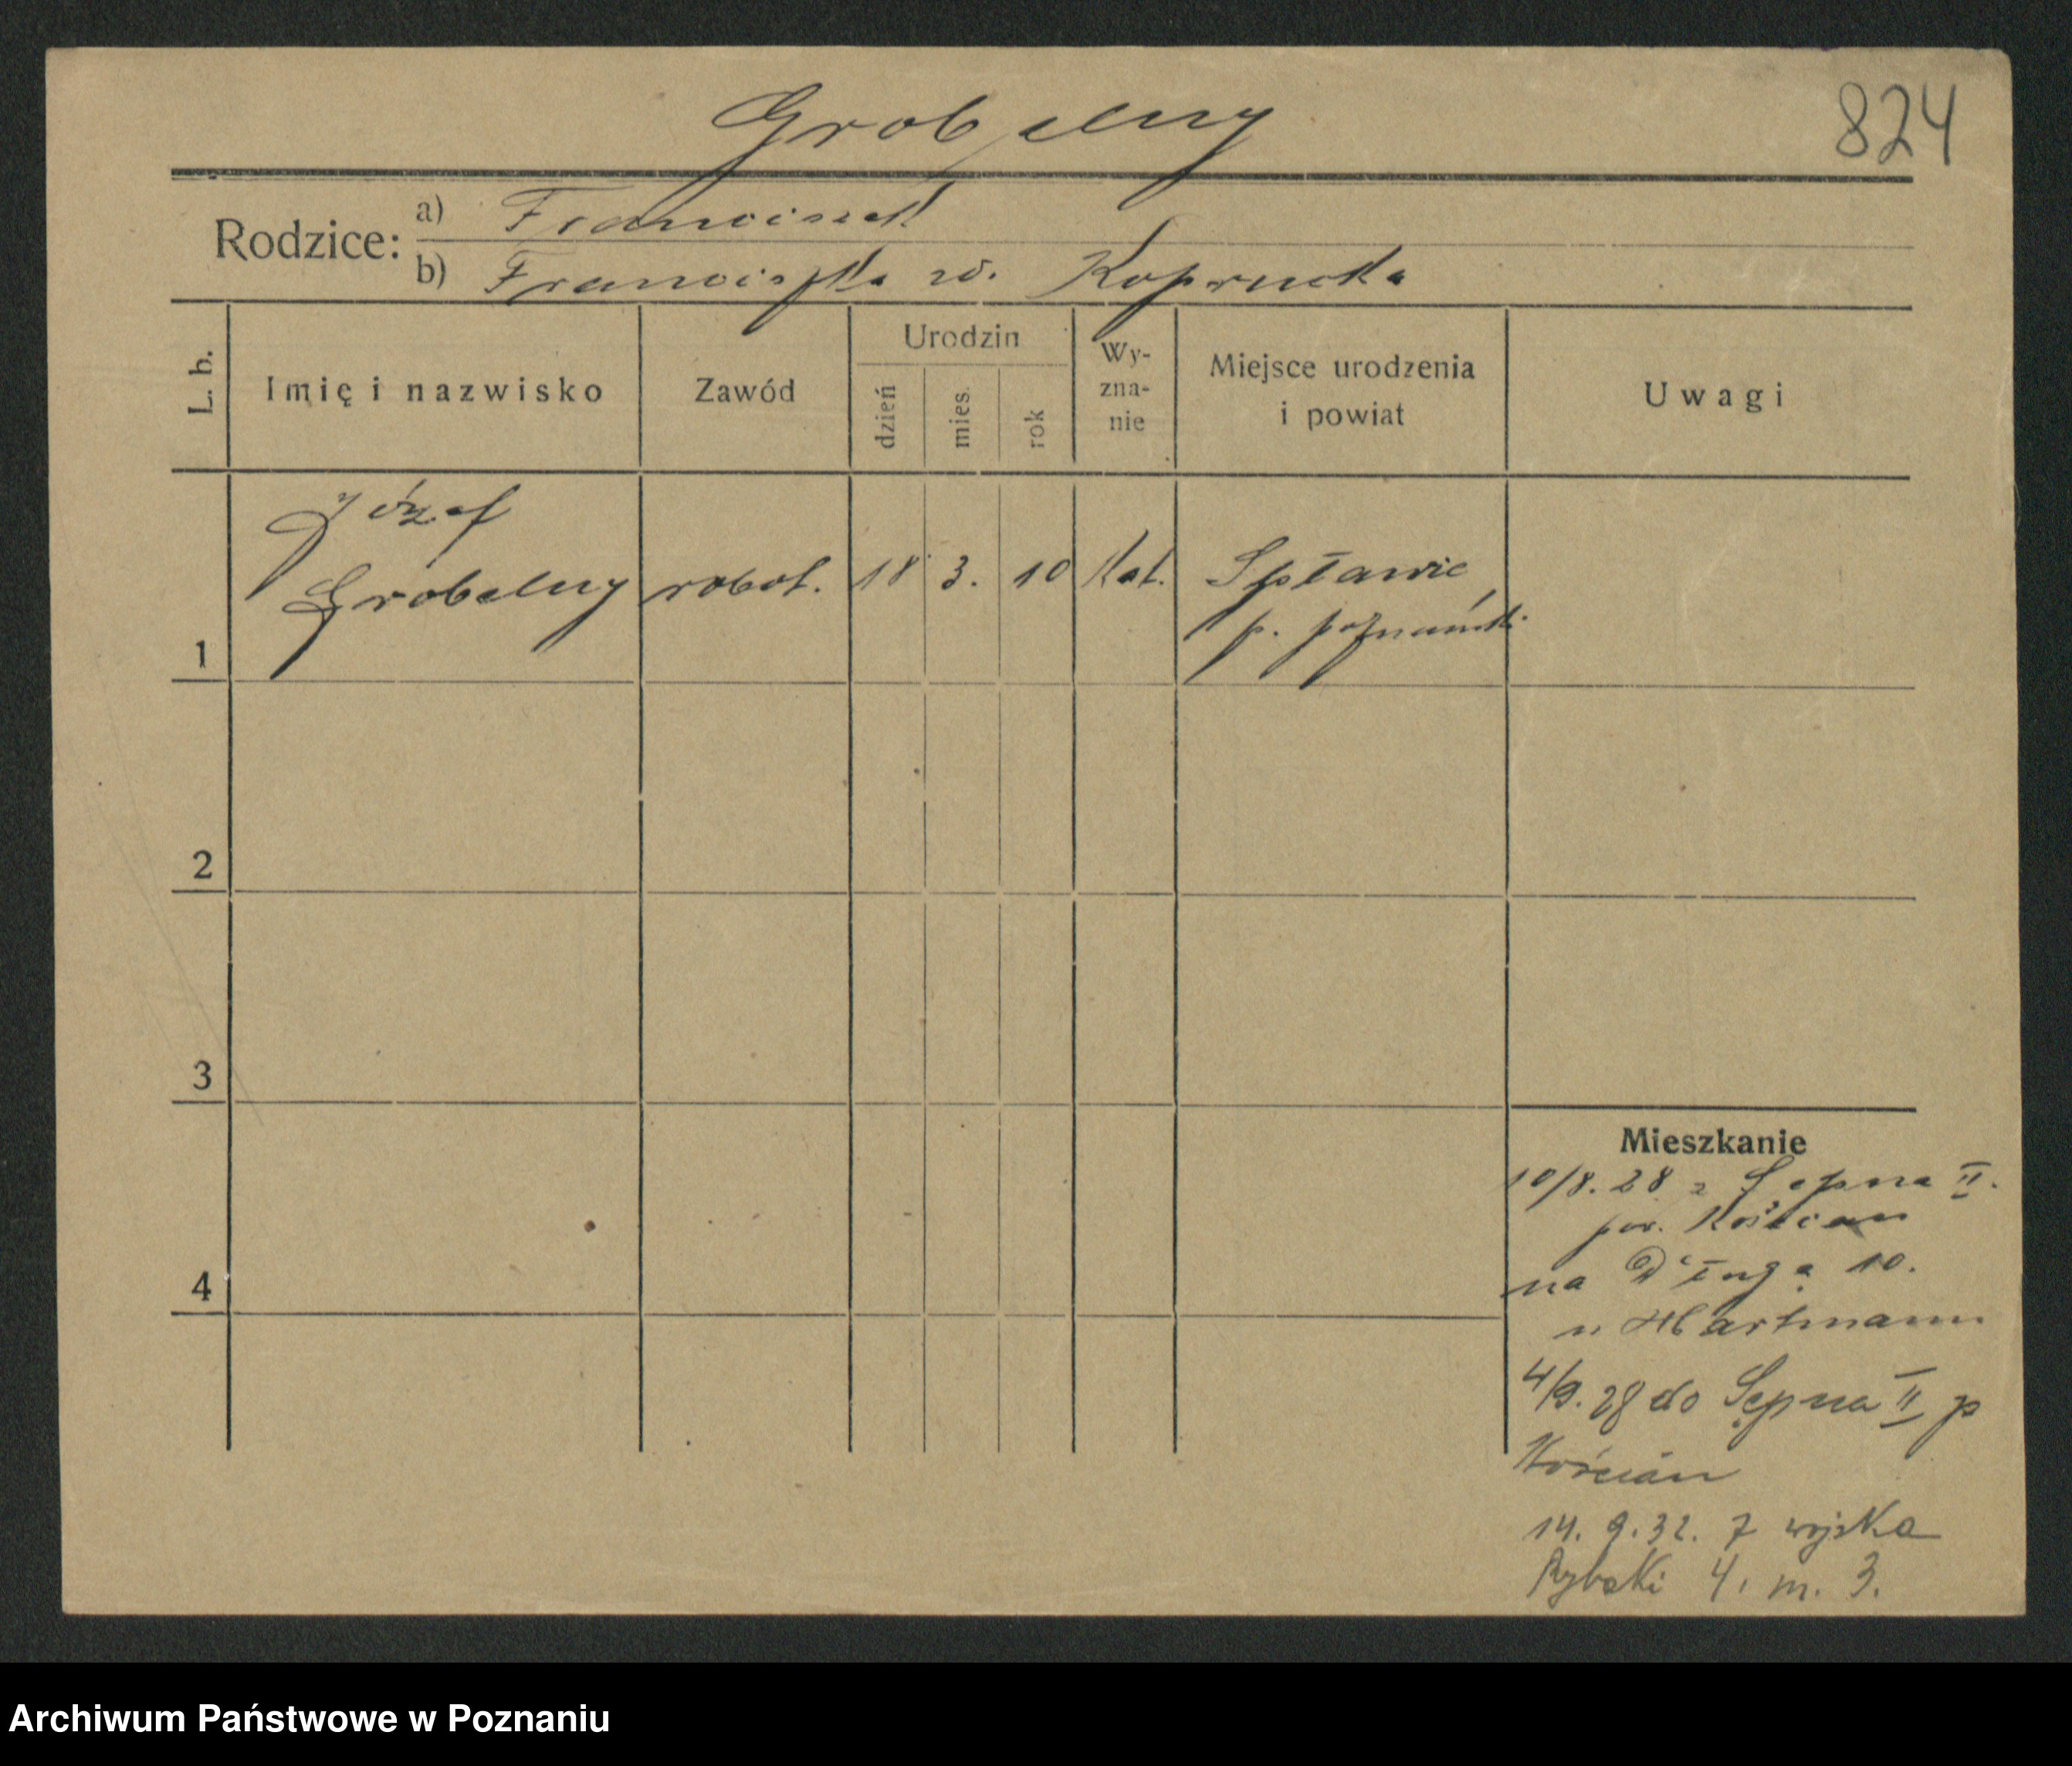 Grobelny
824
Rodzice:
a) Franciszek
b) Franciszka w. Koprucka
L. b.
Imię i nazwisko
Zawód
Urodzin
dzień
mies.
rok
Wy-
zna-
nie
Miejsce urodzenia
i powiat
Uwagi
Józef
Grobelny
robot.
18
3.
10
Kat.
Spławie
p. poznański
1
2
3
4
Mieszkanie
10/8. 28 z Sepna II.
pow. Kościan
na Długą 10.
u Hartmann
4/9. 28 do Sepna II p
Kościan
14. 9. 32. z wojska
Rybaki 4. m. 3.
Archiwum Państwowe w Poznaniu